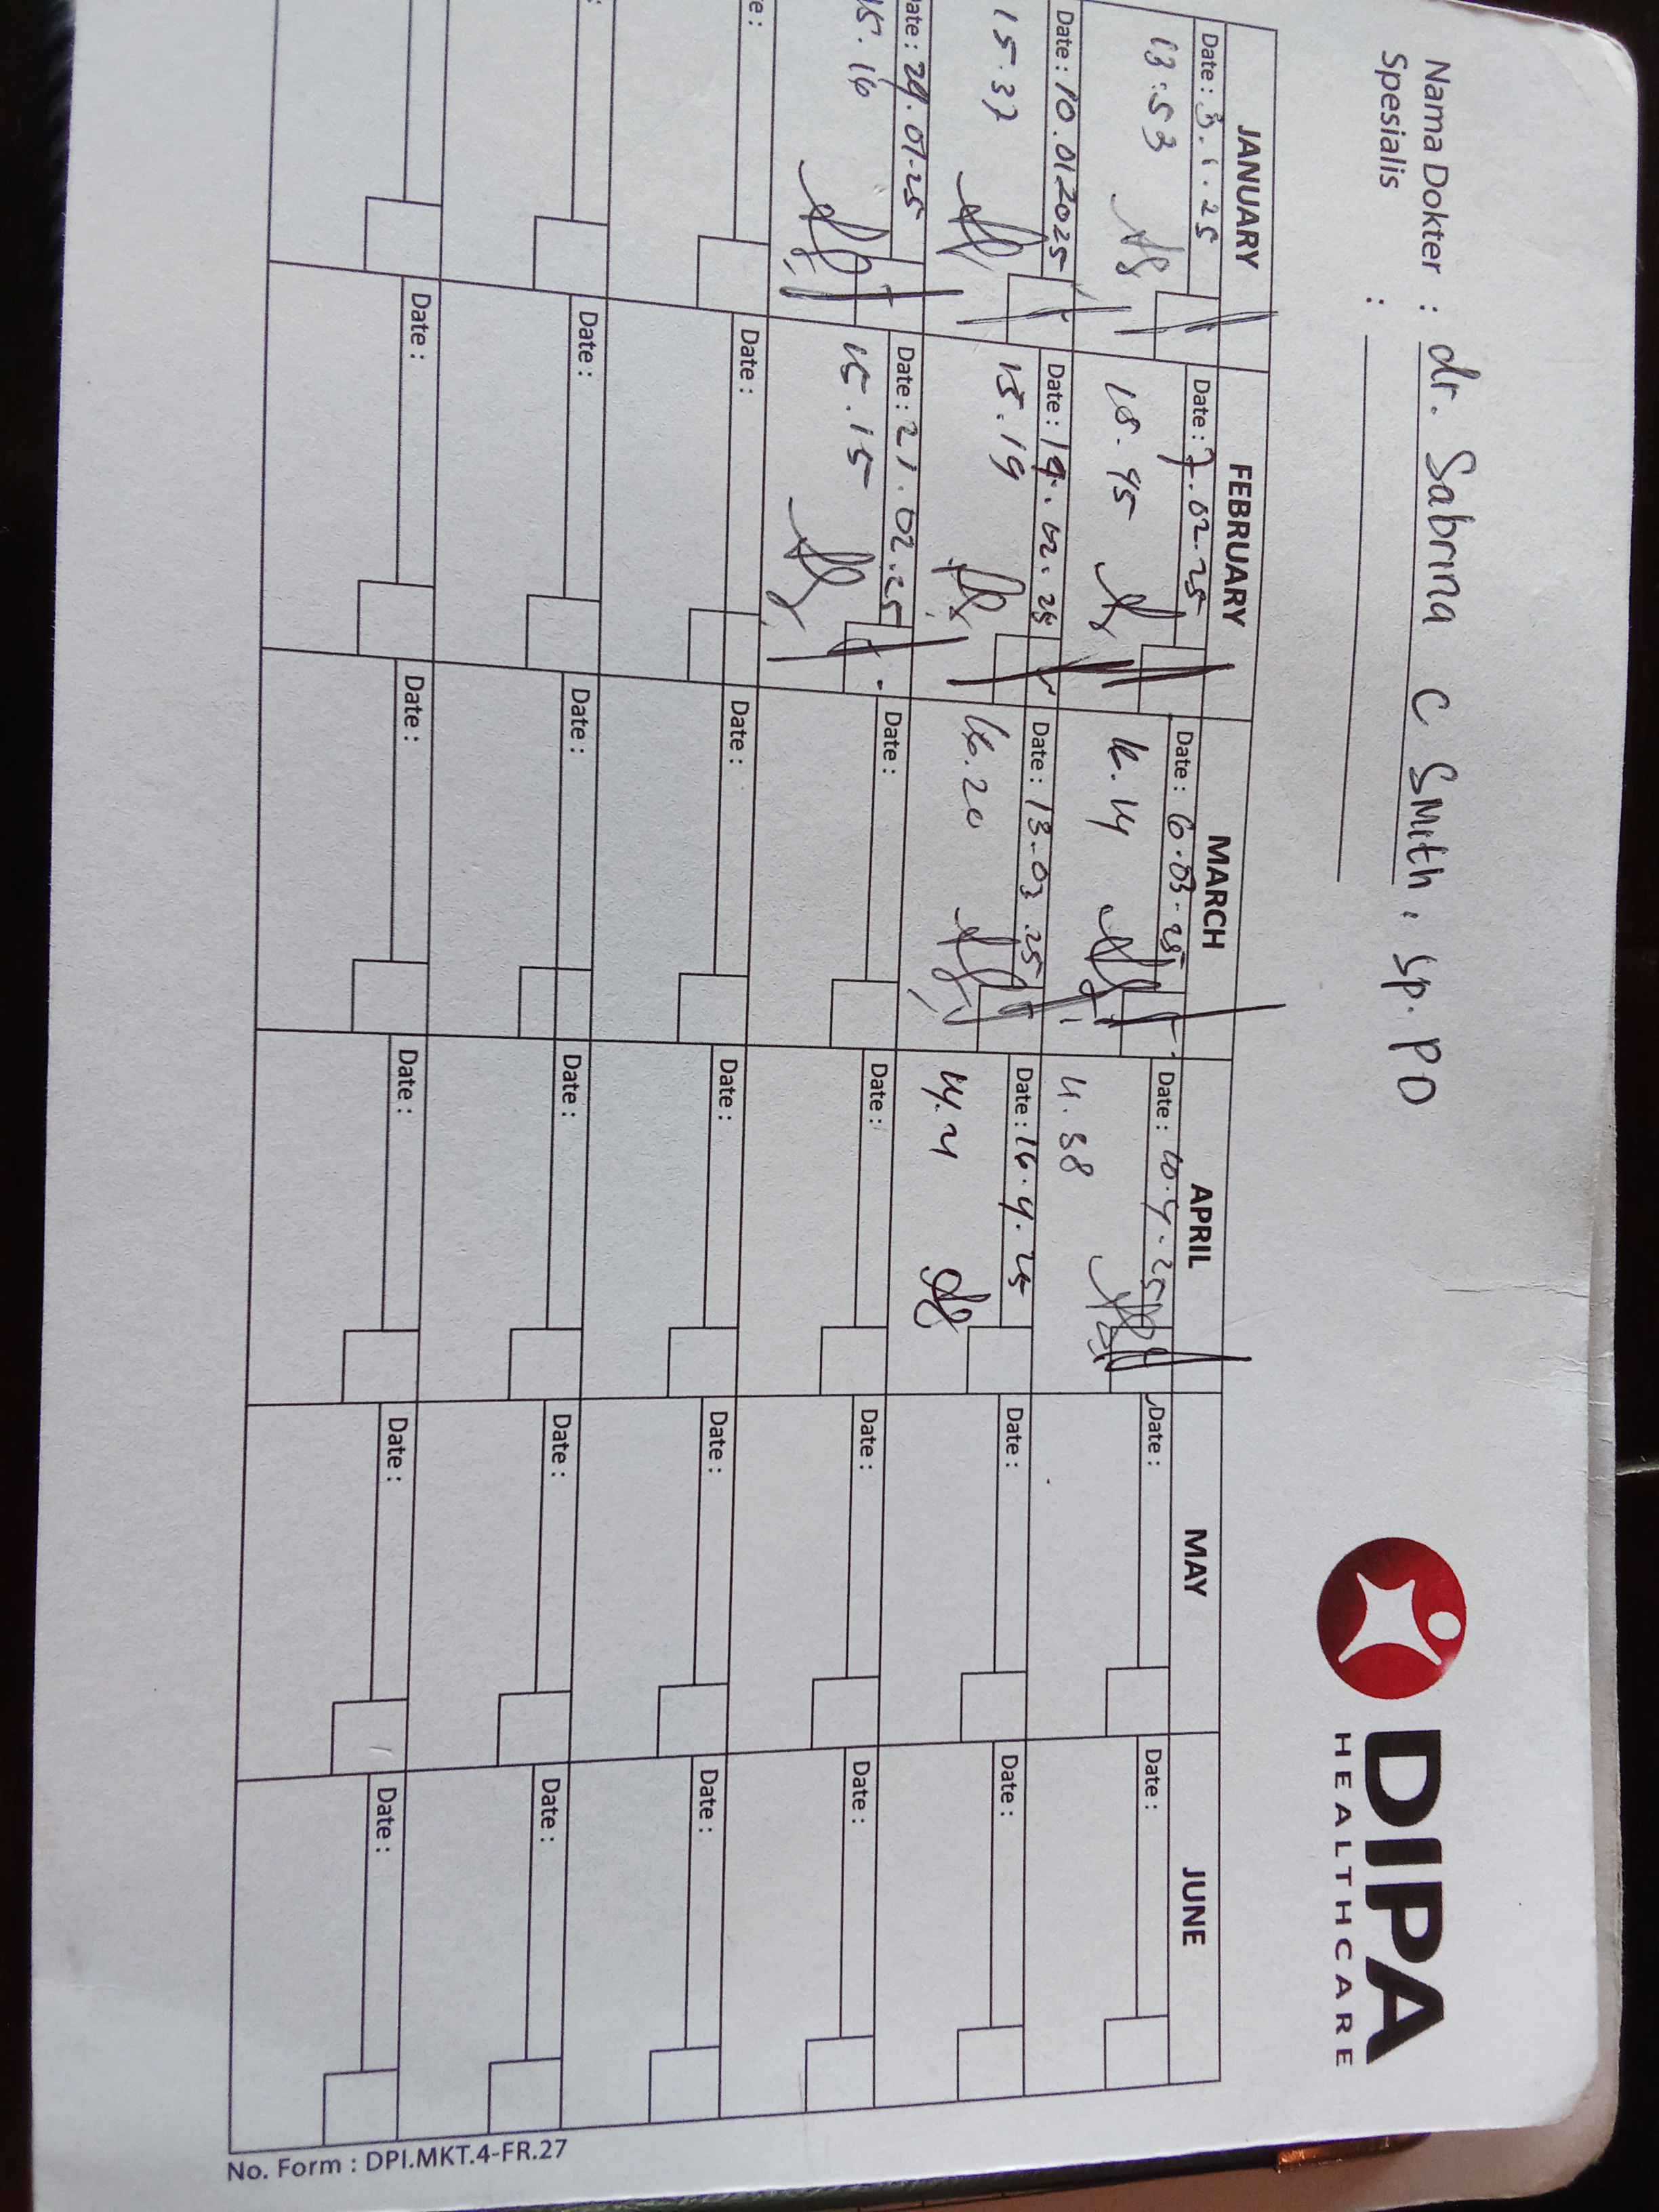 Nama Dokter : dr. Sabrina C Smith, Sp. PD
Spesialis :
DIPA
HEALTHCARE
JANUARY FEBRUARY MARCH APRIL MAY JUNE
Date : 3.1.25 Date : 7.02.25 Date : 6.03.25 Date : 10.4.25 Date : Date :
13:53 18.45 12.14 11.38
Date : 10.012025 Date : 19.02.25 Date : 13.03.25 Date : 16.4.25 Date : Date :
15.37 15.19 16.20 14.21
ate : 29.01.25 Date : 21.02.25 Date : Date : Date : Date :
15.16 15.15
e : Date : Date : Date : Date : Date :
: Date : Date : Date : Date : Date :
Date : Date : Date : Date : Date :
No. Form : DPI.MKT.4-FR.27